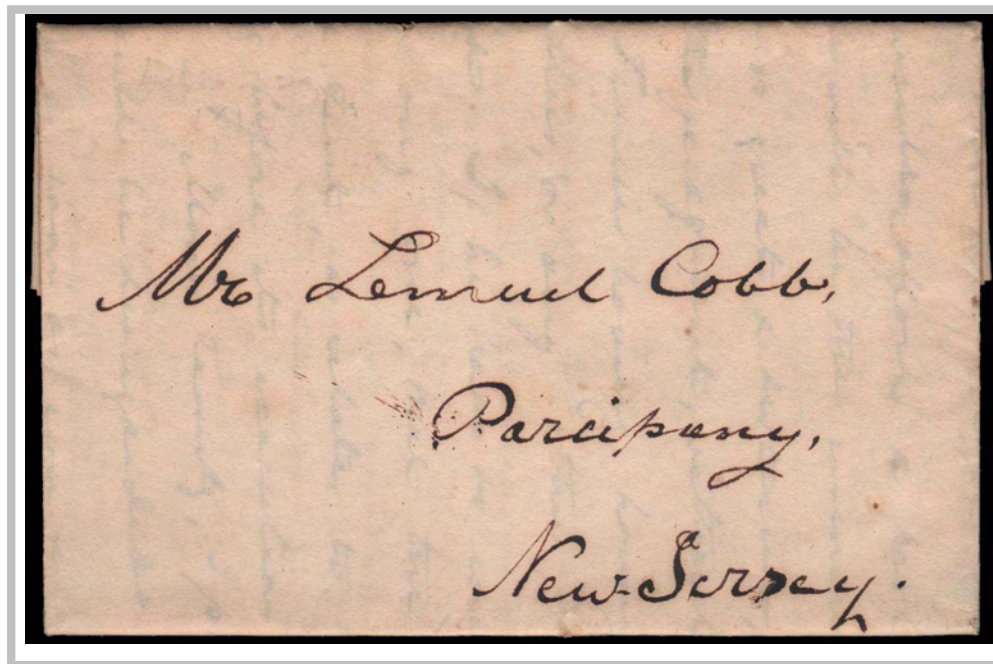 Mr Lemuel Cobb,
Parcipany,
New-Jersey.